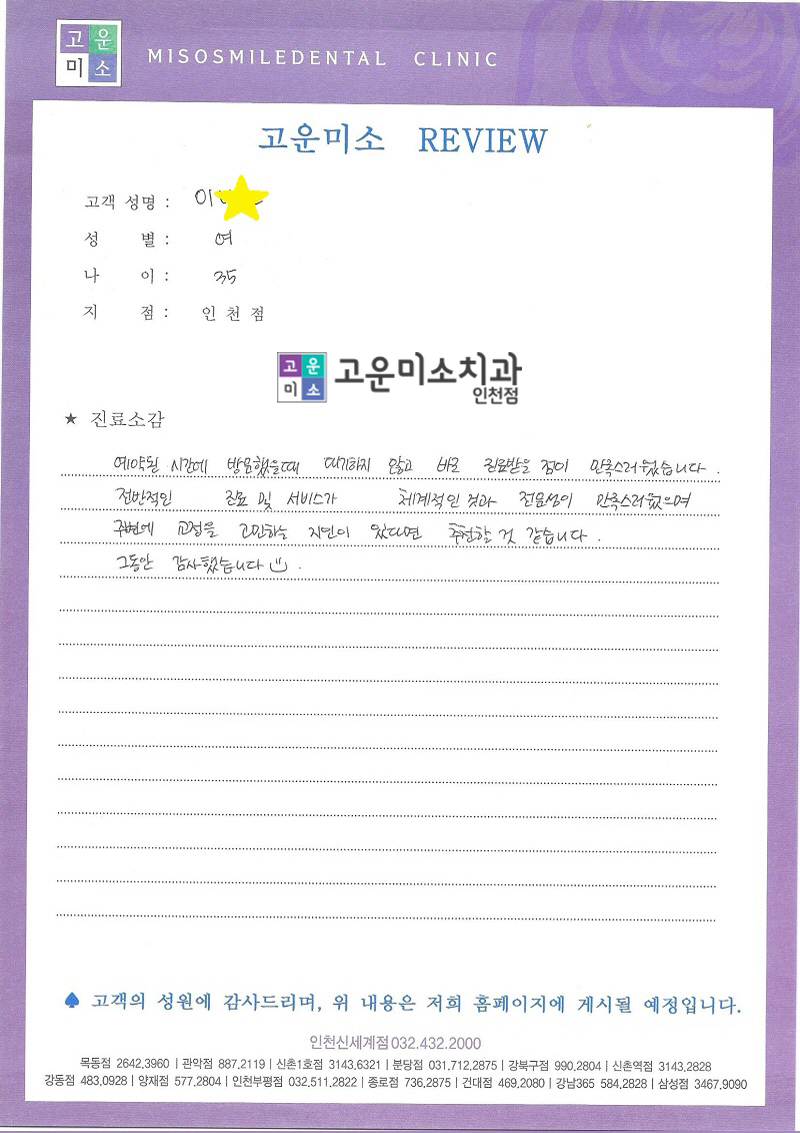 고운
미소
MISOSMILEDENTAL CLINIC
고운미소 REVIEW
고객 성명 : 이
성 별 : 여
나 이 : 35
지 점 : 인천점
고운
미소
고운미소치과
인천점
★ 진료소감
예약된 시간에 방문했을때 대기하지 않고 바로 진료받을 점이 만족스러웠습니다.
전반적인 진료 및 서비스가 체계적인 것과 전문성이 만족스러웠으며
주변에 교정을 고민하는 지인이 있다면 추천할 것 같습니다.
그동안 감사했습니다.
♠ 고객의 성원에 감사드리며, 위 내용은 저희 홈페이지에 게시될 예정입니다.
인천신세계점032.432.2000
목동점 2642,3960 | 관악점 887,2119 | 신촌1호점 3143,6321 | 분당점 031.712,2875 | 강북구점 990,2804 | 신촌역점 3143,2828
강동점 483,0928 | 양재점 577,2804 | 인천부평점 032,511,2822 | 종로점 736,2875 | 건대점 469,2080 | 강남365 584,2828 | 삼성점 3467,9090